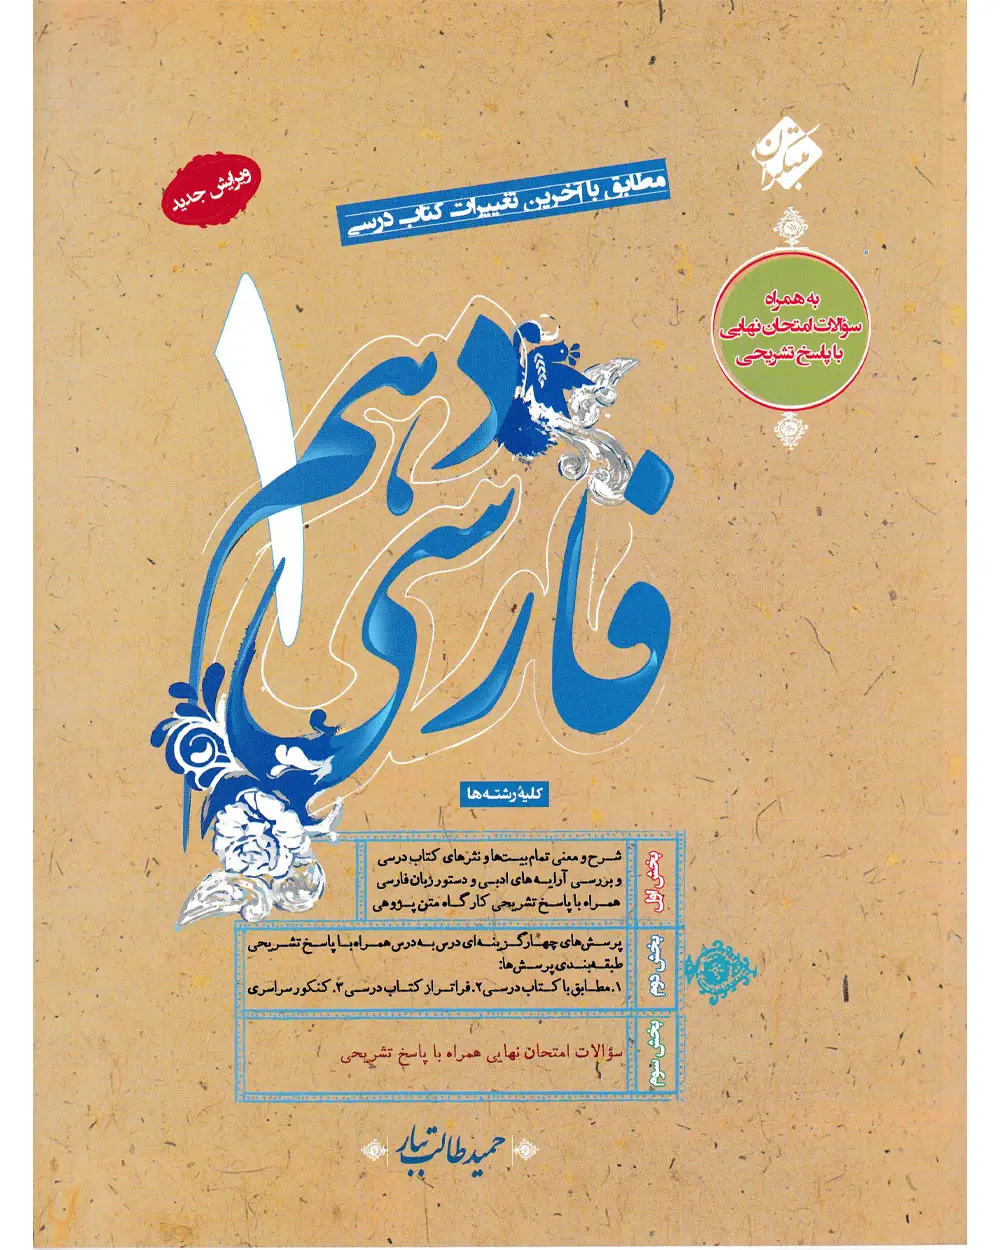 مبتکران
ویرایش جدید
مطابق با آخرین تغییرات کتاب درسی
به همراه
سؤالات امتحان نهایی
با پاسخ تشریحی
فارسی
دهم
۱
کلیهٔ رشته‌ها
بخش اول
شرح و معنی تمام بیت‌ها و نثرهای کتاب درسی
و بررسی آرایه‌های ادبی و دستور زبان فارسی
همراه با پاسخ تشریحی کارگاه متن پژوهی
بخش دوم
پرسش‌های چهارگزینه‌ای درس به درس همراه با پاسخ تشریحی
طبقه‌بندی پرسش‌ها:
۱. مطابق با کتاب درسی ۲. فراتر از کتاب درسی ۳. کنکور سراسری
بخش سوم
سؤالات امتحان نهایی همراه با پاسخ تشریحی
حمید طالب تبار